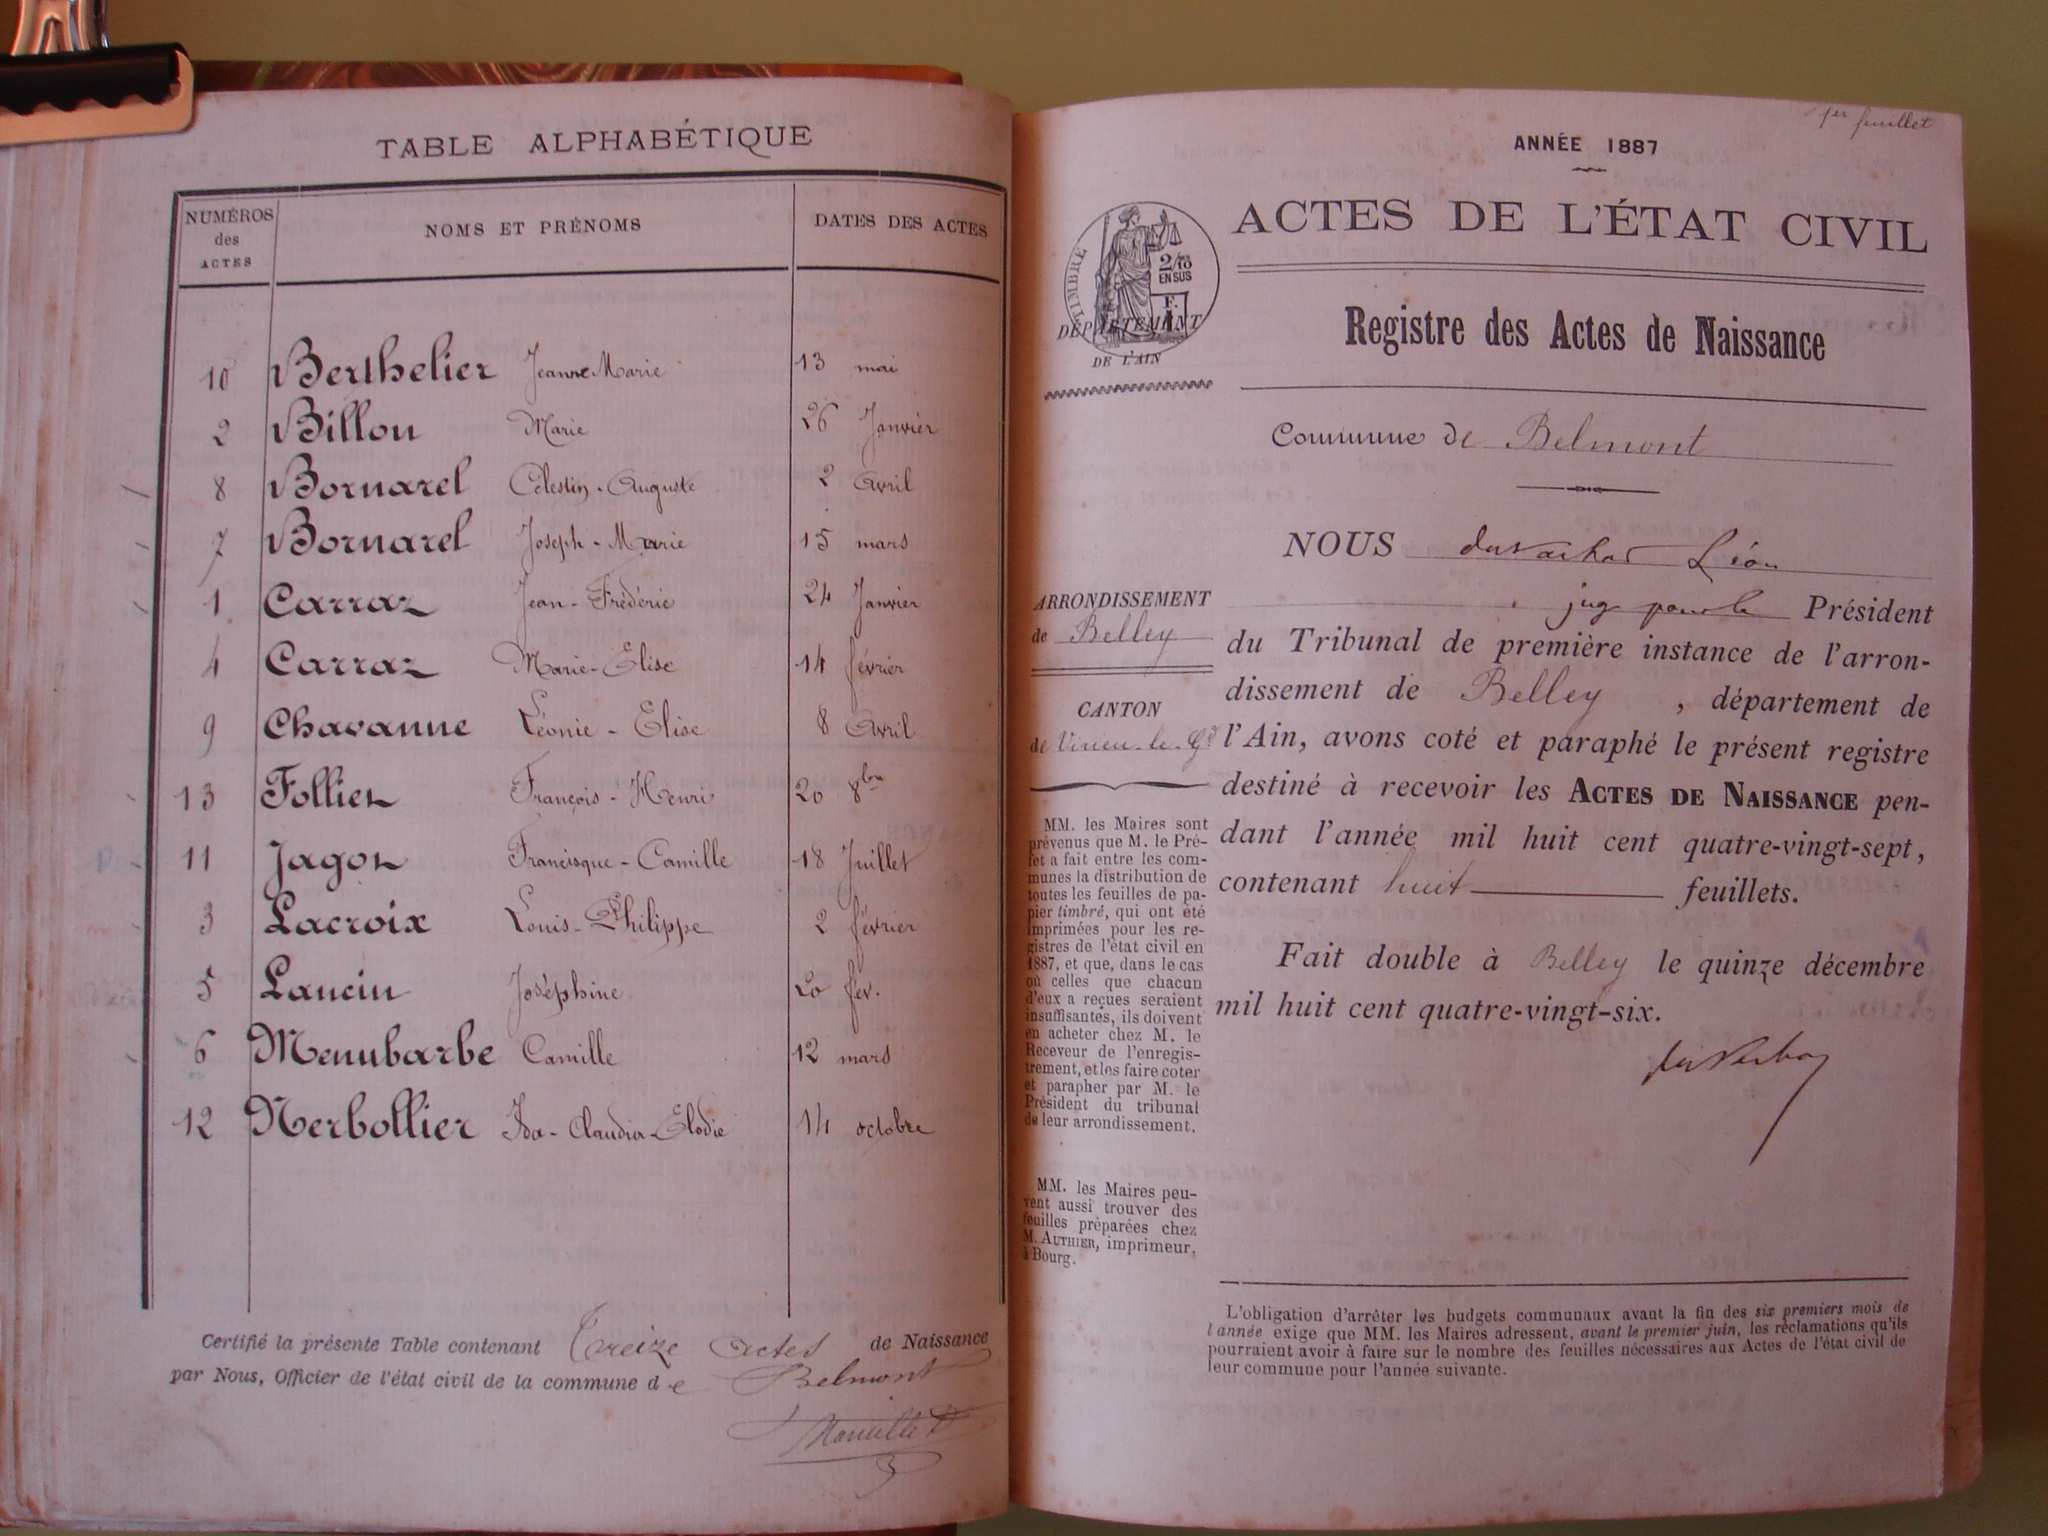 TABLE ALPHABÉTIQUE
NUMÉROS des ACTES
NOMS ET PRÉNOMS
DATES DES ACTES
10 Berthelier Jeanne Marie 13 mai
2 Billon Marie 26 Janvier
8 Bornarel Célestin-Auguste 2 Avril
7 Bornarel Joseph-Marie 15 mars
1 Carraz Jean-Frédéric 24 Janvier
4 Carraz Marie-Elise 14 février
9 Chavanne Léonie-Elise 8 Avril
13 Follier François-Henri 20 8bre
11 Jagot Francisque-Camille 18 Juillet
3 Lacroix Louis-Philippe 2 février
5 Lancin Joséphine 20 fév.
6 Menubarbe Camille 12 mars
12 Nerbollier Ida-Claudia-Elodie 14 octobre
Certifié la présente Table contenant Treize Actes de Naissance
par Nous, Officier de l'état civil de la commune de Belmont
1er feuillet
ANNÉE 1887
ACTES DE L'ÉTAT CIVIL
TIMBRE
2/10 EN SUS
DÉPARTEMENT
DE L'AIN
Registre des Actes de Naissance
Commune de Belmont
NOUS Léon
juge pour le Président
du Tribunal de première instance de l'arron-
dissement de Belley, département de
l'Ain, avons coté et paraphé le présent registre
destiné à recevoir les ACTES DE NAISSANCE pen-
dant l'année mil huit cent quatre-vingt-sept,
contenant huit feuillets.
Fait double à Belley le quinze décembre
mil huit cent quatre-vingt-six.
ARRONDISSEMENT
de Belley
CANTON
de Virieu-le-Gd
MM. les Maires sont
prévenus que M. le Pré-
fet a fait entre les com-
munes la distribution de
toutes les feuilles de pa-
pier timbré, qui ont été
imprimées pour les re-
gistres de l'état civil en
1887, et que, dans le cas
où celles que chacun
d'eux a reçues seraient
insuffisantes, ils doivent
en acheter chez M. le
Receveur de l'enregis-
trement, et les faire coter
et parapher par M. le
Président du tribunal
de leur arrondissement.
MM. les Maires peu-
vent aussi trouver des
feuilles préparées chez
M. AUTHIER, imprimeur,
à Bourg.
L'obligation d'arrêter les budgets communaux avant la fin des six premiers mois de
l'année exige que MM. les Maires adressent, avant le premier juin, les réclamations qu'ils
pourraient avoir à faire sur le nombre des feuilles nécessaires aux Actes de l'état civil de
leur commune pour l'année suivante.